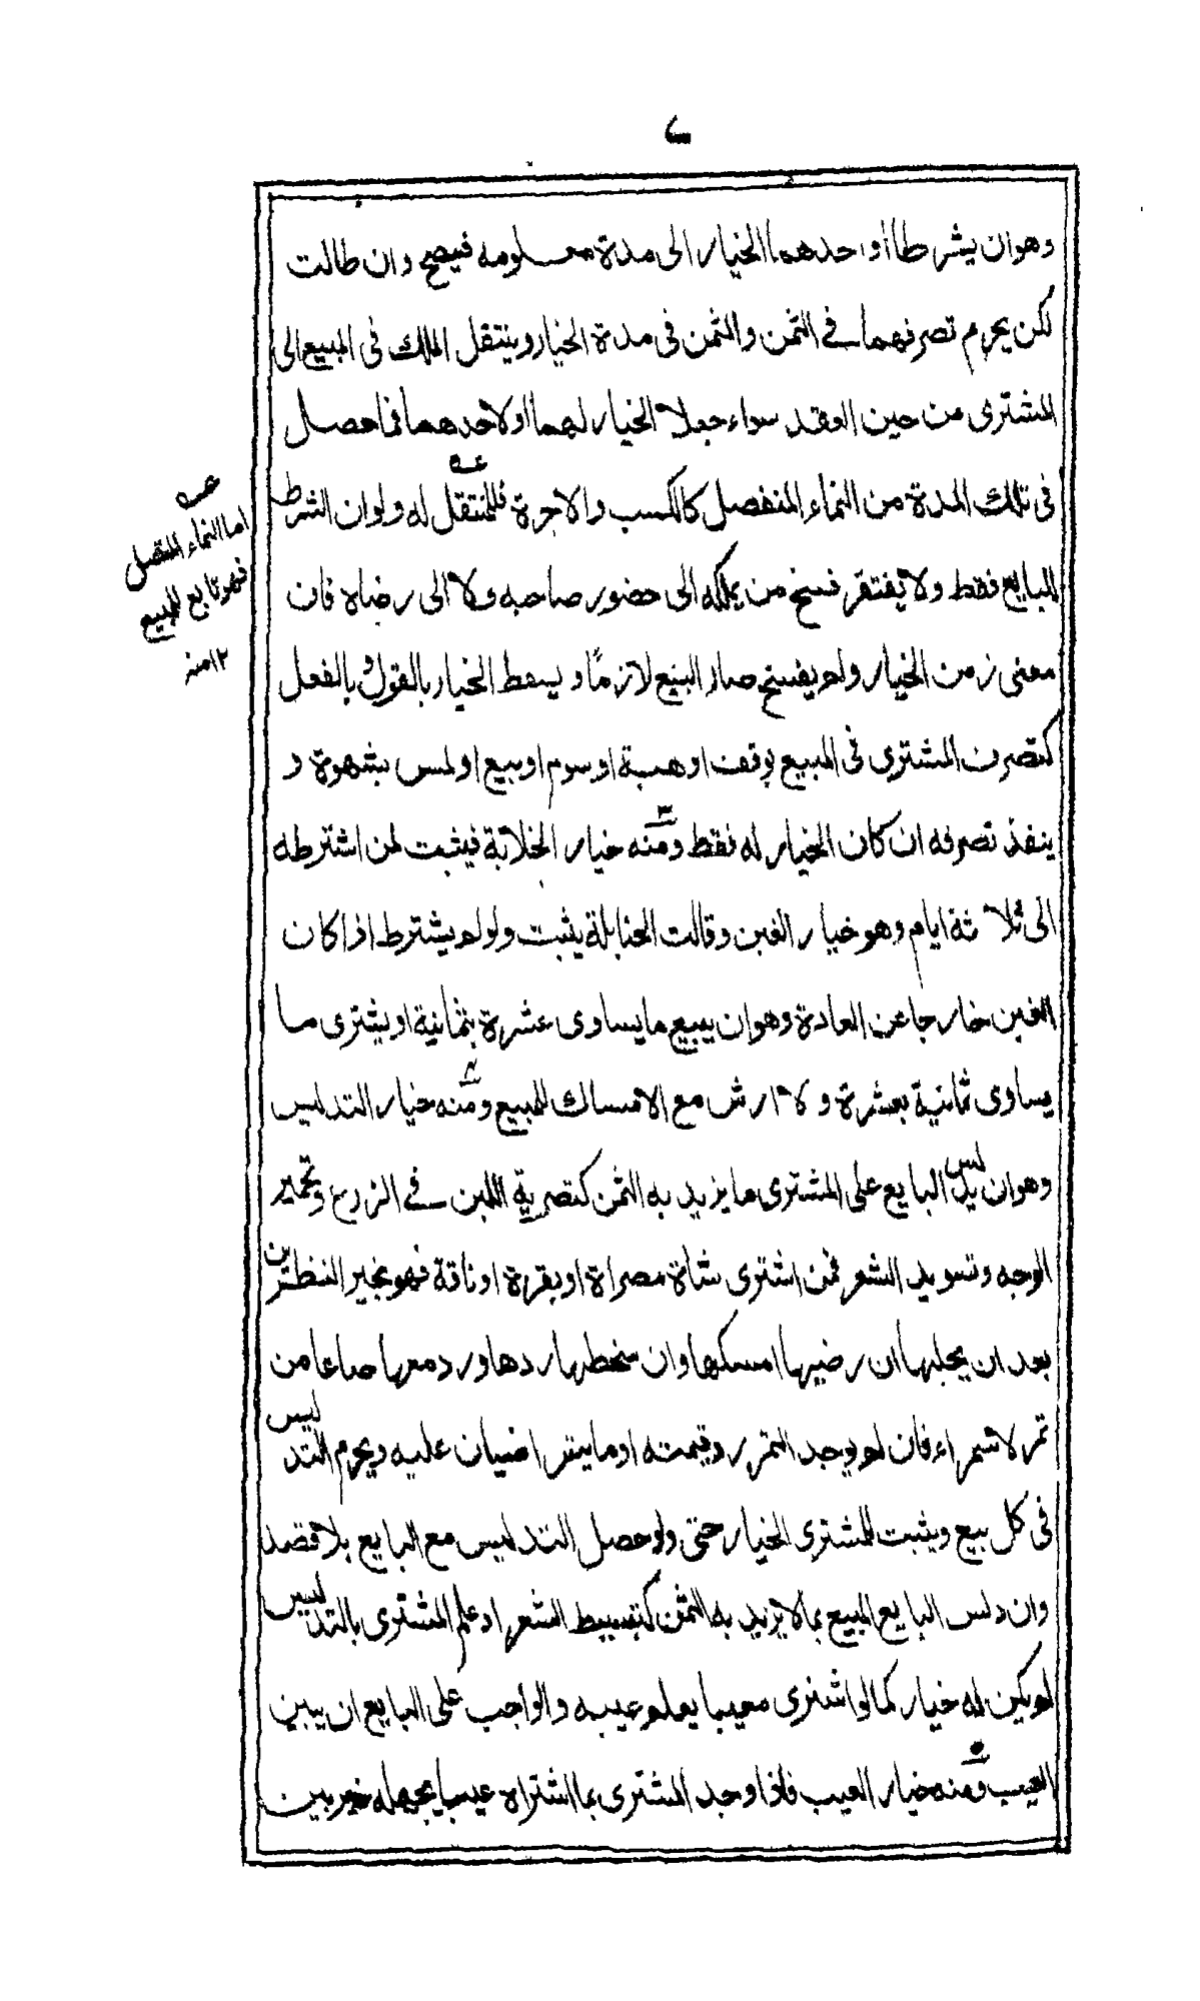 وهو ان يشرطا او احدهما الخيار الى مدة معلومه فيصح وان طالت
لكن يحرم تصرفهما في الثمن والثمن فى مدة الخيار وينتقل الملك فى المبيع الى
المشترى من حين العقد سواء جعلا الخيار لهما او لاحدهما فما حصل
فى تلك المدة من النماء المنفصل كالكسب والاجرة فللمنتقل له ولو ان الشرط
للبايع فقط ولا يفتقر فسخ من يملكه الى حضور صاحبه ولا الى رضاه فان
مضى زمن الخيار ولم يفسخ صار البيع لازمًا ويسقط الخيار بالقول وبالفعل
كتصرف المشترى فى المبيع بوقف او هبة او سوم او بيع او لمس بشهوة و
ينفذ تصرفه ان كان الخيار له فقط ٣ ومنه خيار الخلابة فيثبت لمن اشترطه
الى ثلاثة ايام وهو خيار الغبن وقالت الحنابلة يثبت ولو لم يشترط اذا كان
الغبن خارجا عن العادة وهو ان يبيع ما يساوى عشرة بثمانية او يشترى ما
يساوى ثمانية بعشرة ولا ارش مع الامساك للمبيع ٤ ومنه خيار التدليس
وهو ان يدلس البايع على المشترى ما يزيد به الثمن كتصرية اللبن في الزرع وتحمير
الوجه وتسويد الشعر فمن اشترى شاة مصراة او بقرة او ناقة فهو بخير النظرين
بعد ان يحلبها ان رضيها امسكها وان سخطها ردها ورد معها صاعا من
تمر لا سمراء فان لم يوجد التمر رد قيمته او ما يتراضيان عليه ويحرم التدليس
فى كل بيع ويثبت للمشترى الخيار حتى ولو حصل التدليس مع البايع بلا قصد
وان دلس البايع المبيع بما لا يزيد به الثمن كتسبيط الشعر او علم المشترى بالتدليس
لم يكن له خيار كما لو اشترى معيبا يعلم عيبه والواجب على البايع ان يبين
العيب ٥ ومنه خيار العيب فاذا وجد المشترى بما اشتراه عيبا يجهله خير بين
اما النماء المتصل
فهو تابع للمبيع
١٢ منه